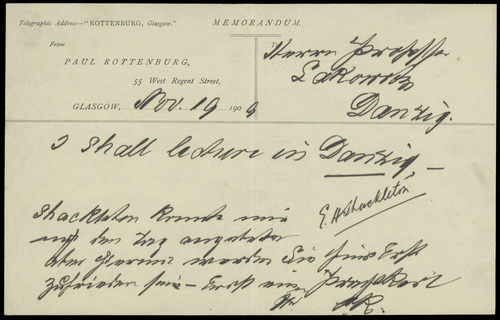 Telegraphic Address—"ROTTENBURG, Glasgow."
MEMORANDUM.
From
PAUL ROTTENBURG,
55 West Regent Street,
GLASGOW, Nov. 19 1909
To
Herrn Professor
Lakowitz
Danzig.
I shall lecture in Danzig,
E H Shackleton
Shackleton konnte mir
den Tag angeben
aber werden Sie
zufrieden sein –